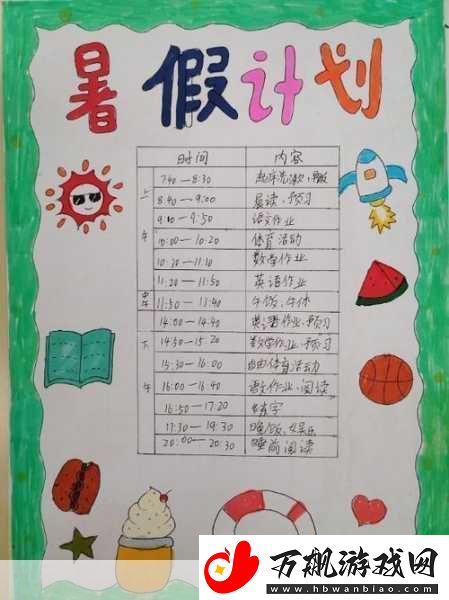 暑假计划
时间 内容
7:40—8:30 起床洗漱、早饭
8:40—9:00 晨读、预习
9:10—9:50 语文作业
10:00—10:20 体育活动
10:30—11:10 数学作业
11:20—11:50 英语作业
11:50—13:40 午饭、午休
14:00—14:40 英语作业、预习
14:50—15:20 数学作业、预习
15:30—16:00 自由体育活动
16:00—16:40 语文作业、阅读
16:50—17:20 练字
17:30—19:30 晚饭、娱乐
20:00—20:30 睡前阅读
上午
中午
下午
万飙游戏网
www.hbwanbiao.com